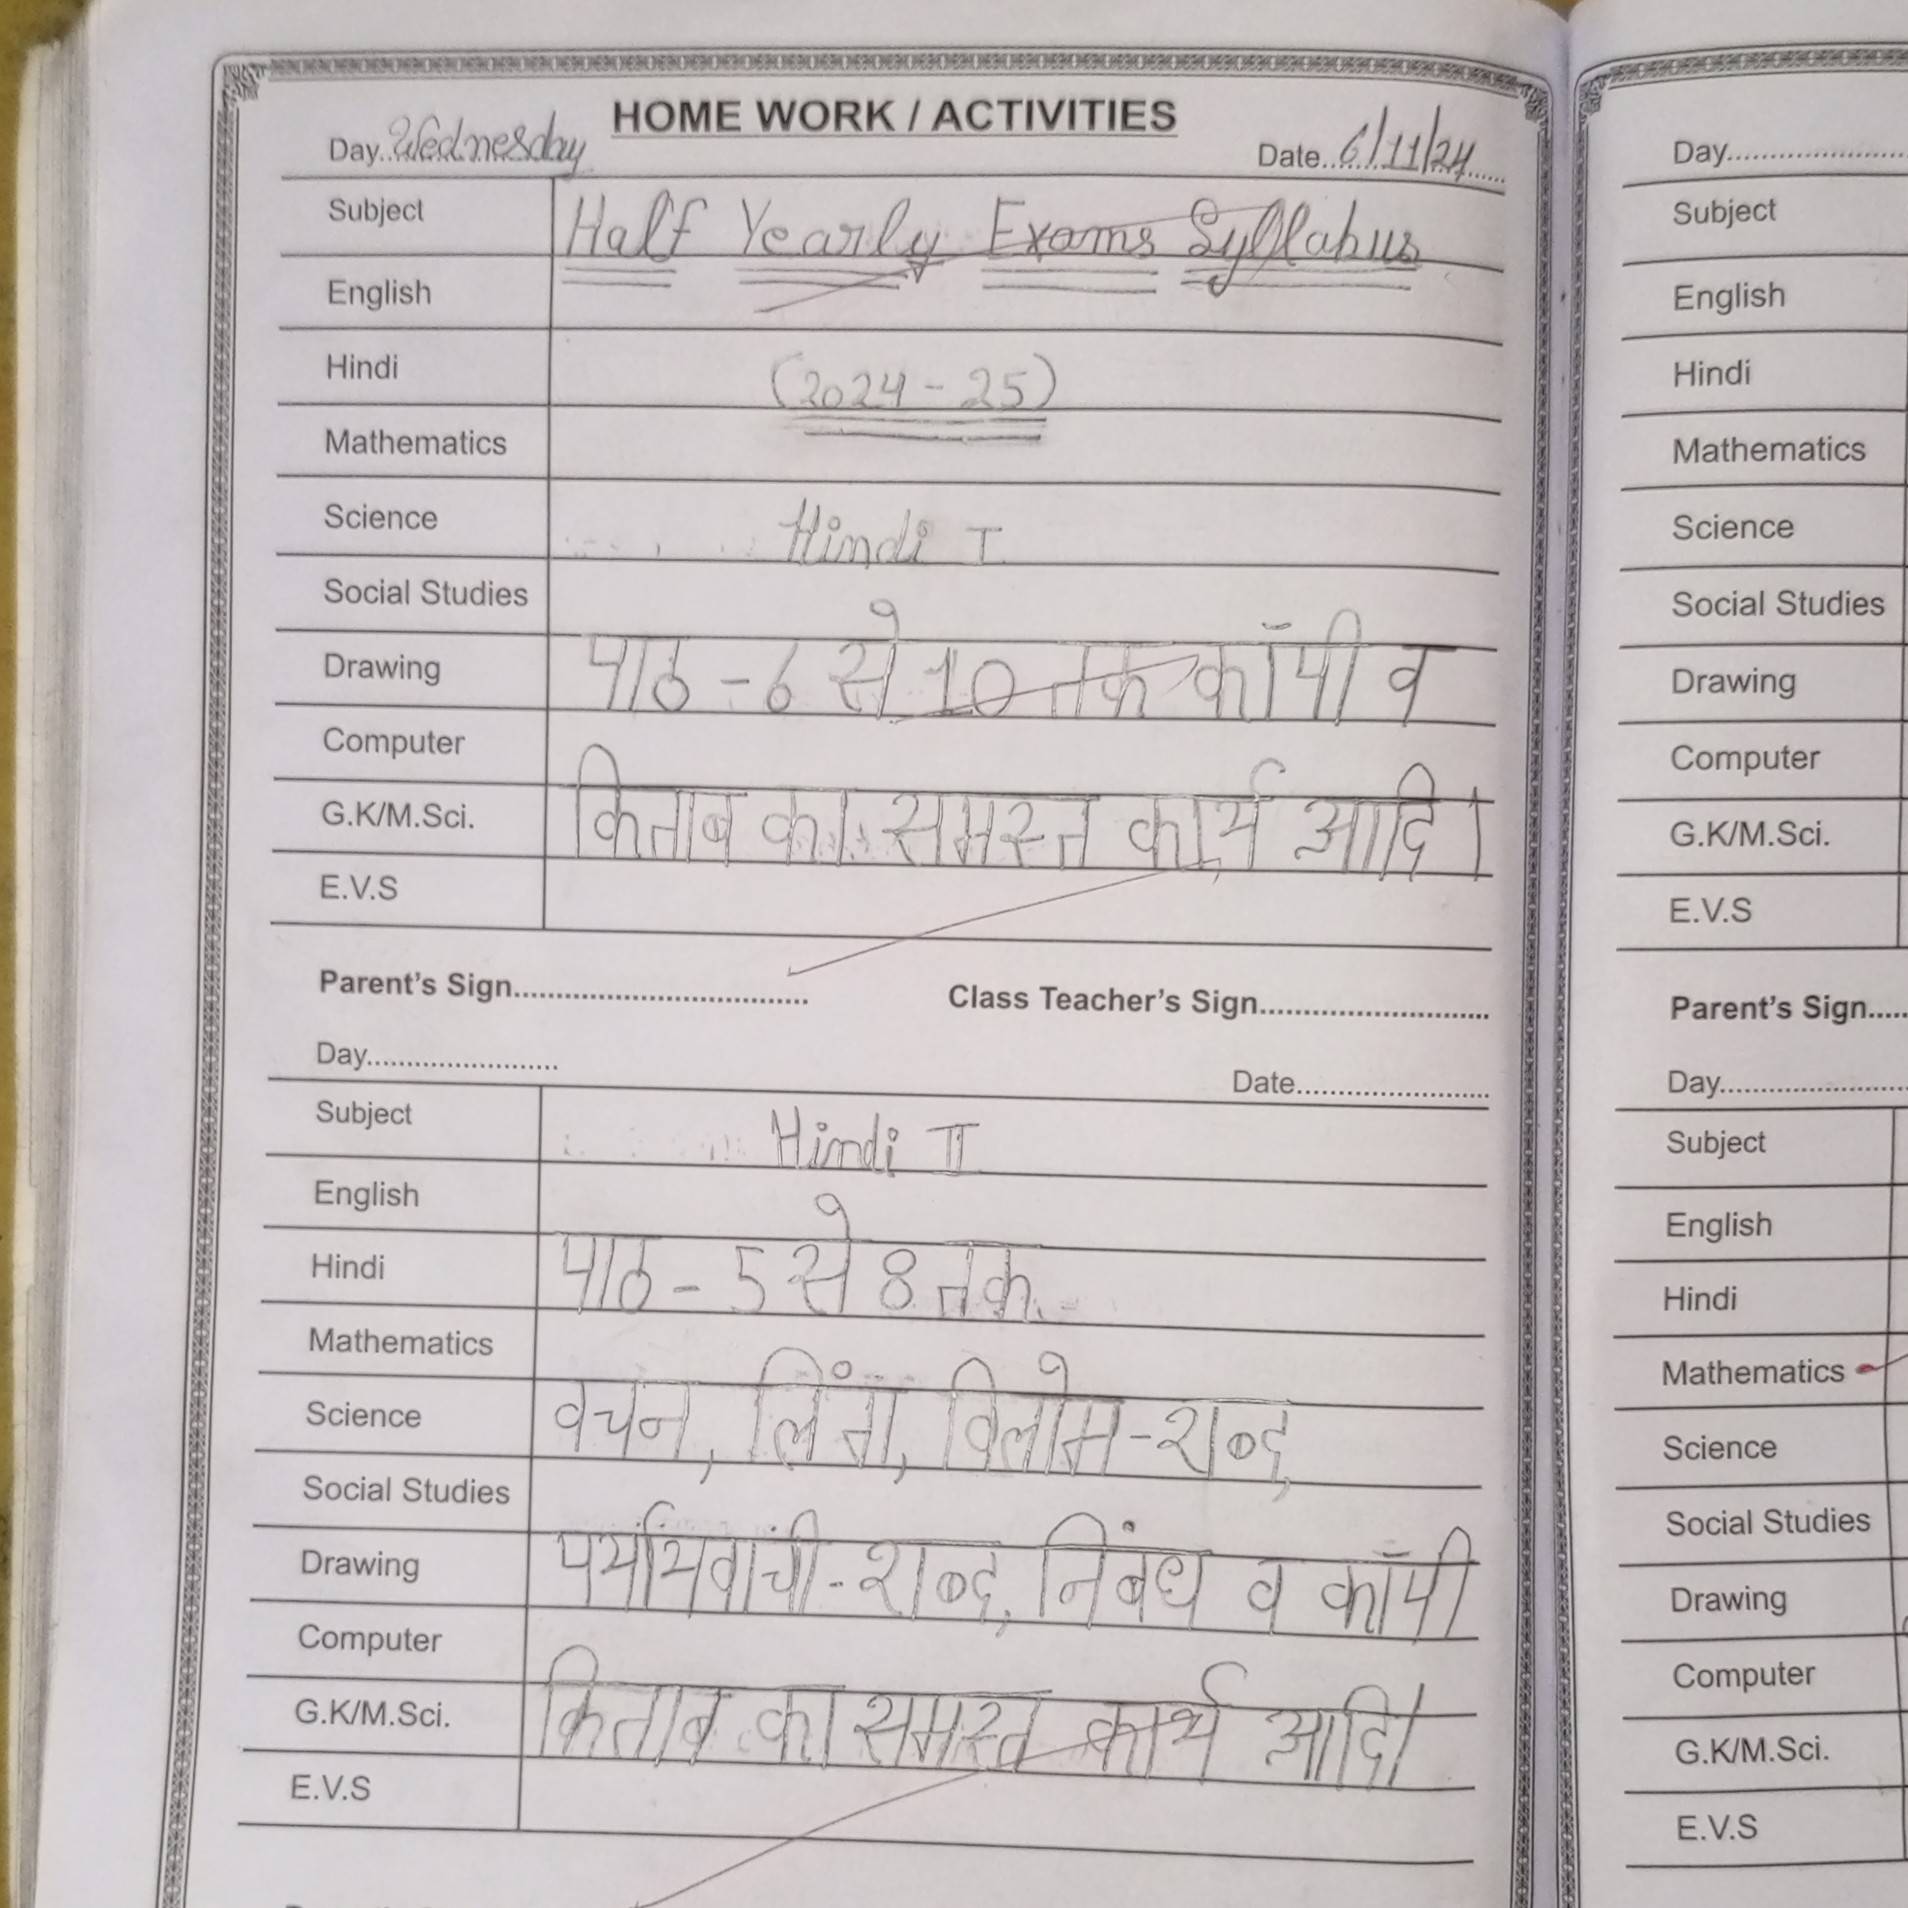 HOME WORK / ACTIVITIES
Day..Wednesday
Date..6/11/24
Subject
Half Yearly Exams Syllabus
English
Hindi
(2024-25)
Mathematics
Science
Hindi I
Social Studies
Drawing
पाठ - 6 से 10 तक कॉपी व
Computer
G.K/M.Sci.
किताब का समस्त कार्य आदि।
E.V.S
Parent's Sign..............................
Class Teacher's Sign........................
Day.......................
Date.......................
Subject
Hindi II
English
Hindi
पाठ - 5 से 8 तक
Mathematics
Science
वचन, लिंग, विलोम-शब्द,
Social Studies
Drawing
पर्यायवाची-शब्द, निबंध व कॉपी
Computer
G.K/M.Sci.
किताब का समस्त कार्य आदि।
E.V.S
Day.....................
Subject
English
Hindi
Mathematics
Science
Social Studies
Drawing
Computer
G.K/M.Sci.
E.V.S
Parent's Sign.....
Day.....................
Subject
English
Hindi
Mathematics
Science
Social Studies
Drawing
Computer
G.K/M.Sci.
E.V.S